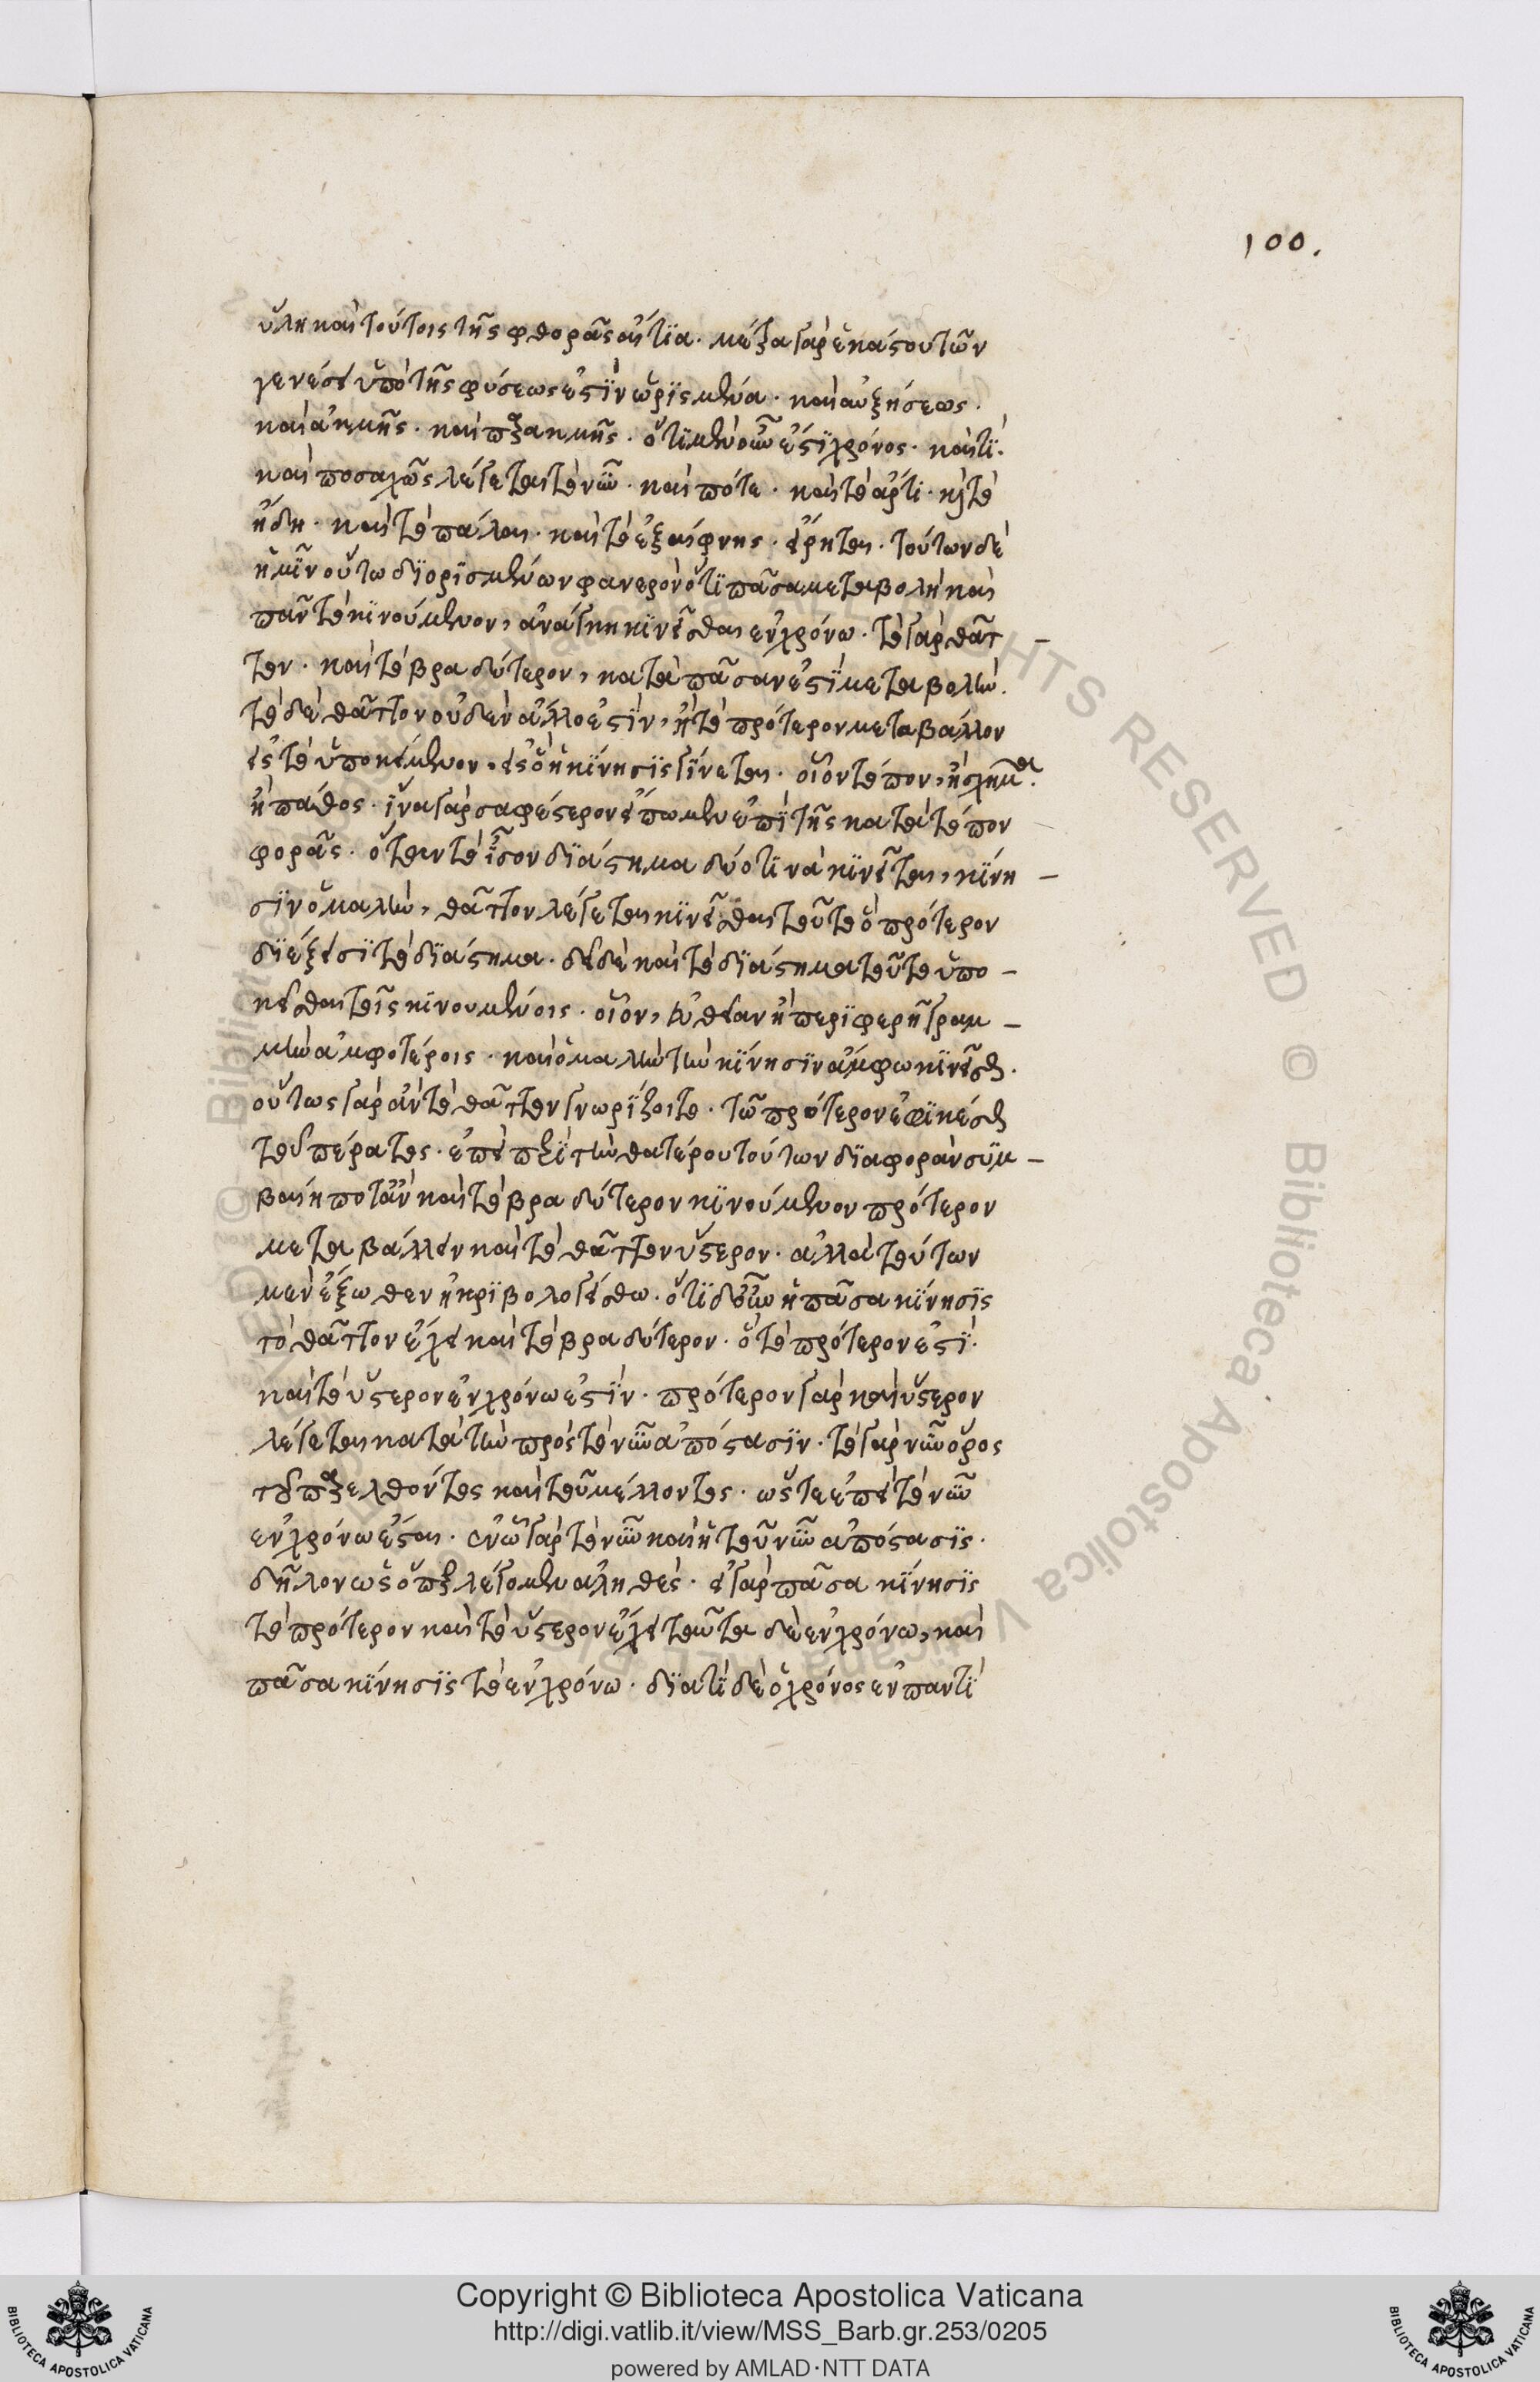 100.
ὕλη καὶ τούτοις τῆς φθορᾶς αἰτία. μέτρα γὰρ ἑκάστου τῶν
γενέσει ὑπὸ τῆς φύσεως ἐστὶν ὡρισμένα. καὶ αὐξήσεως.
καὶ ἀκμῆς. καὶ παρακμῆς. ὅτι μὲν οὖν ἐστὶ χρόνος. καὶ τί.
καὶ ποσαχῶς λέγεται τὸ νῦν. καὶ πότε. καὶ τὸ ἄρτι. καὶ τὸ
ἤδη. καὶ τὸ πάλαι. καὶ τὸ ἐξαίφνης. εἴρηται. τούτων δὲ
ἡμῖν οὕτω διορισμένων φανερὸν ὅτι πᾶσα μεταβολὴ καὶ
πᾶν τὸ κινούμενον, ἀνάγκη κινεῖσθαι ἐν χρόνω. τὸ γὰρ θᾶτ-
τον. καὶ τὸ βραδύτερον, κατὰ πᾶσαν ἐστὶ μεταβολήν.
τὸ δὲ θᾶττον οὐδὲν ἄλλο ἐστὶν, ἢ τὸ πρότερον μεταβάλλον
εἰς τὸ ὑποκείμενον. εἰς ὃ ἡ κίνησις γίνεται. οἷον τόπον, ἢ σχῆμα.
ἢ πάθος. ἵνα γὰρ σαφέστερον εἴπωμεν ἐπὶ τῆς κατὰ τόπον
φορᾶς. ὅταν τὸ ἴσον διάστημα δύο τινὰ κινεῖται, κίνη-
σιν ὁμαλὴν, θᾶττον λέγεται κινεῖσθαι τοῦτο ὃ πρότερον
διέξεισι τὸ διάστημα. δεῖ δὲ καὶ τὸ διάστημα τοῦτο ὑπο-
κεῖσθαι τοῖς κινουμένοις. οἷον, εὐθεῖαν ἢ περιφερῆ γραμ-
μὴν ἀμφοτέροις. καὶ ὁμαλὴν τὴν κίνησιν ἄμφω κινεῖσθαι.
οὕτως γὰρ ἂν τὸ θᾶττον γνωρίζοιτο. τῶ πρότερον ἐφικέσθαι
τοῦ πέρατος. ἐπεὶ παρὰ τὴν θατέρου τούτων διαφορὰν συμ-
βαίη ποτ' ἂν καὶ τὸ βραδύτερον κινούμενον πρότερον
μεταβάλλειν καὶ τὸ θᾶττον ὕστερον. ἀλλὰ τούτων
μὲν ἔξωθεν ἠκριβολογείσθω. ὅτι δ' οὖν ἡ πᾶσα κίνησις
τὸ θᾶττον ἔχει καὶ τὸ βραδύτερον. ὃ τὸ πρότερον ἐστὶ.
καὶ τὸ ὕστερον ἐν χρόνω ἐστὶν. πρότερον γὰρ καὶ ὕστερον
λέγεται κατὰ τὴν πρὸς τὸ νῦν ἀπόστασιν. τὸ γὰρ νῦν ὅρος
τοῦ παρελθόντος καὶ τοῦ μέλλοντος. ὥστε ἐπεὶ τὸ νῦν
ἐν χρόνω ἔσται. ἐν ᾧ γὰρ τὸ νῦν καὶ ἡ τοῦ νῦν ἀπόστασις.
δῆλον ὡς ὅπερ λέγομεν ἀληθές. εἰ γὰρ πᾶσα κίνησις
τὸ πρότερον καὶ τὸ ὕστερον ἔχει ταῦτα δὲ ἐν χρόνω, καὶ
πᾶσα κίνησις τὸ ἐν χρόνω. διατί δὲ ὁ χρόνος ἐν παντὶ
Copyright © Biblioteca Apostolica Vaticana
http://digi.vatlib.it/view/MSS_Barb.gr.253/0205
powered by AMLAD·NTT DATA